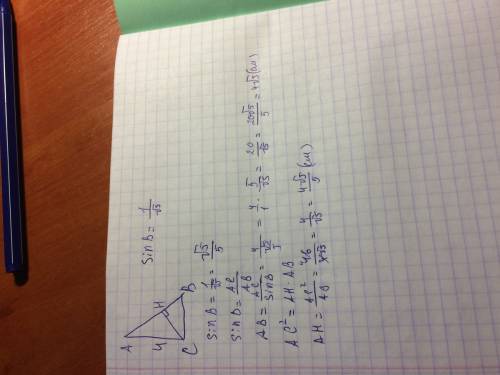 A
H
4
C
B
sin B = 1/√5
sin B = 1/√5 = √5/5
sin B = AC/AB
AB = AC/sin B = 4/(√5/5) = 4/1 · 5/√5 = 20/√5 = 20√5/5 = 4√5 (см)
AC² = AH · AB
AH = AC²/AB = 16/4√5 = 4/√5 = 4√5/5 (см)